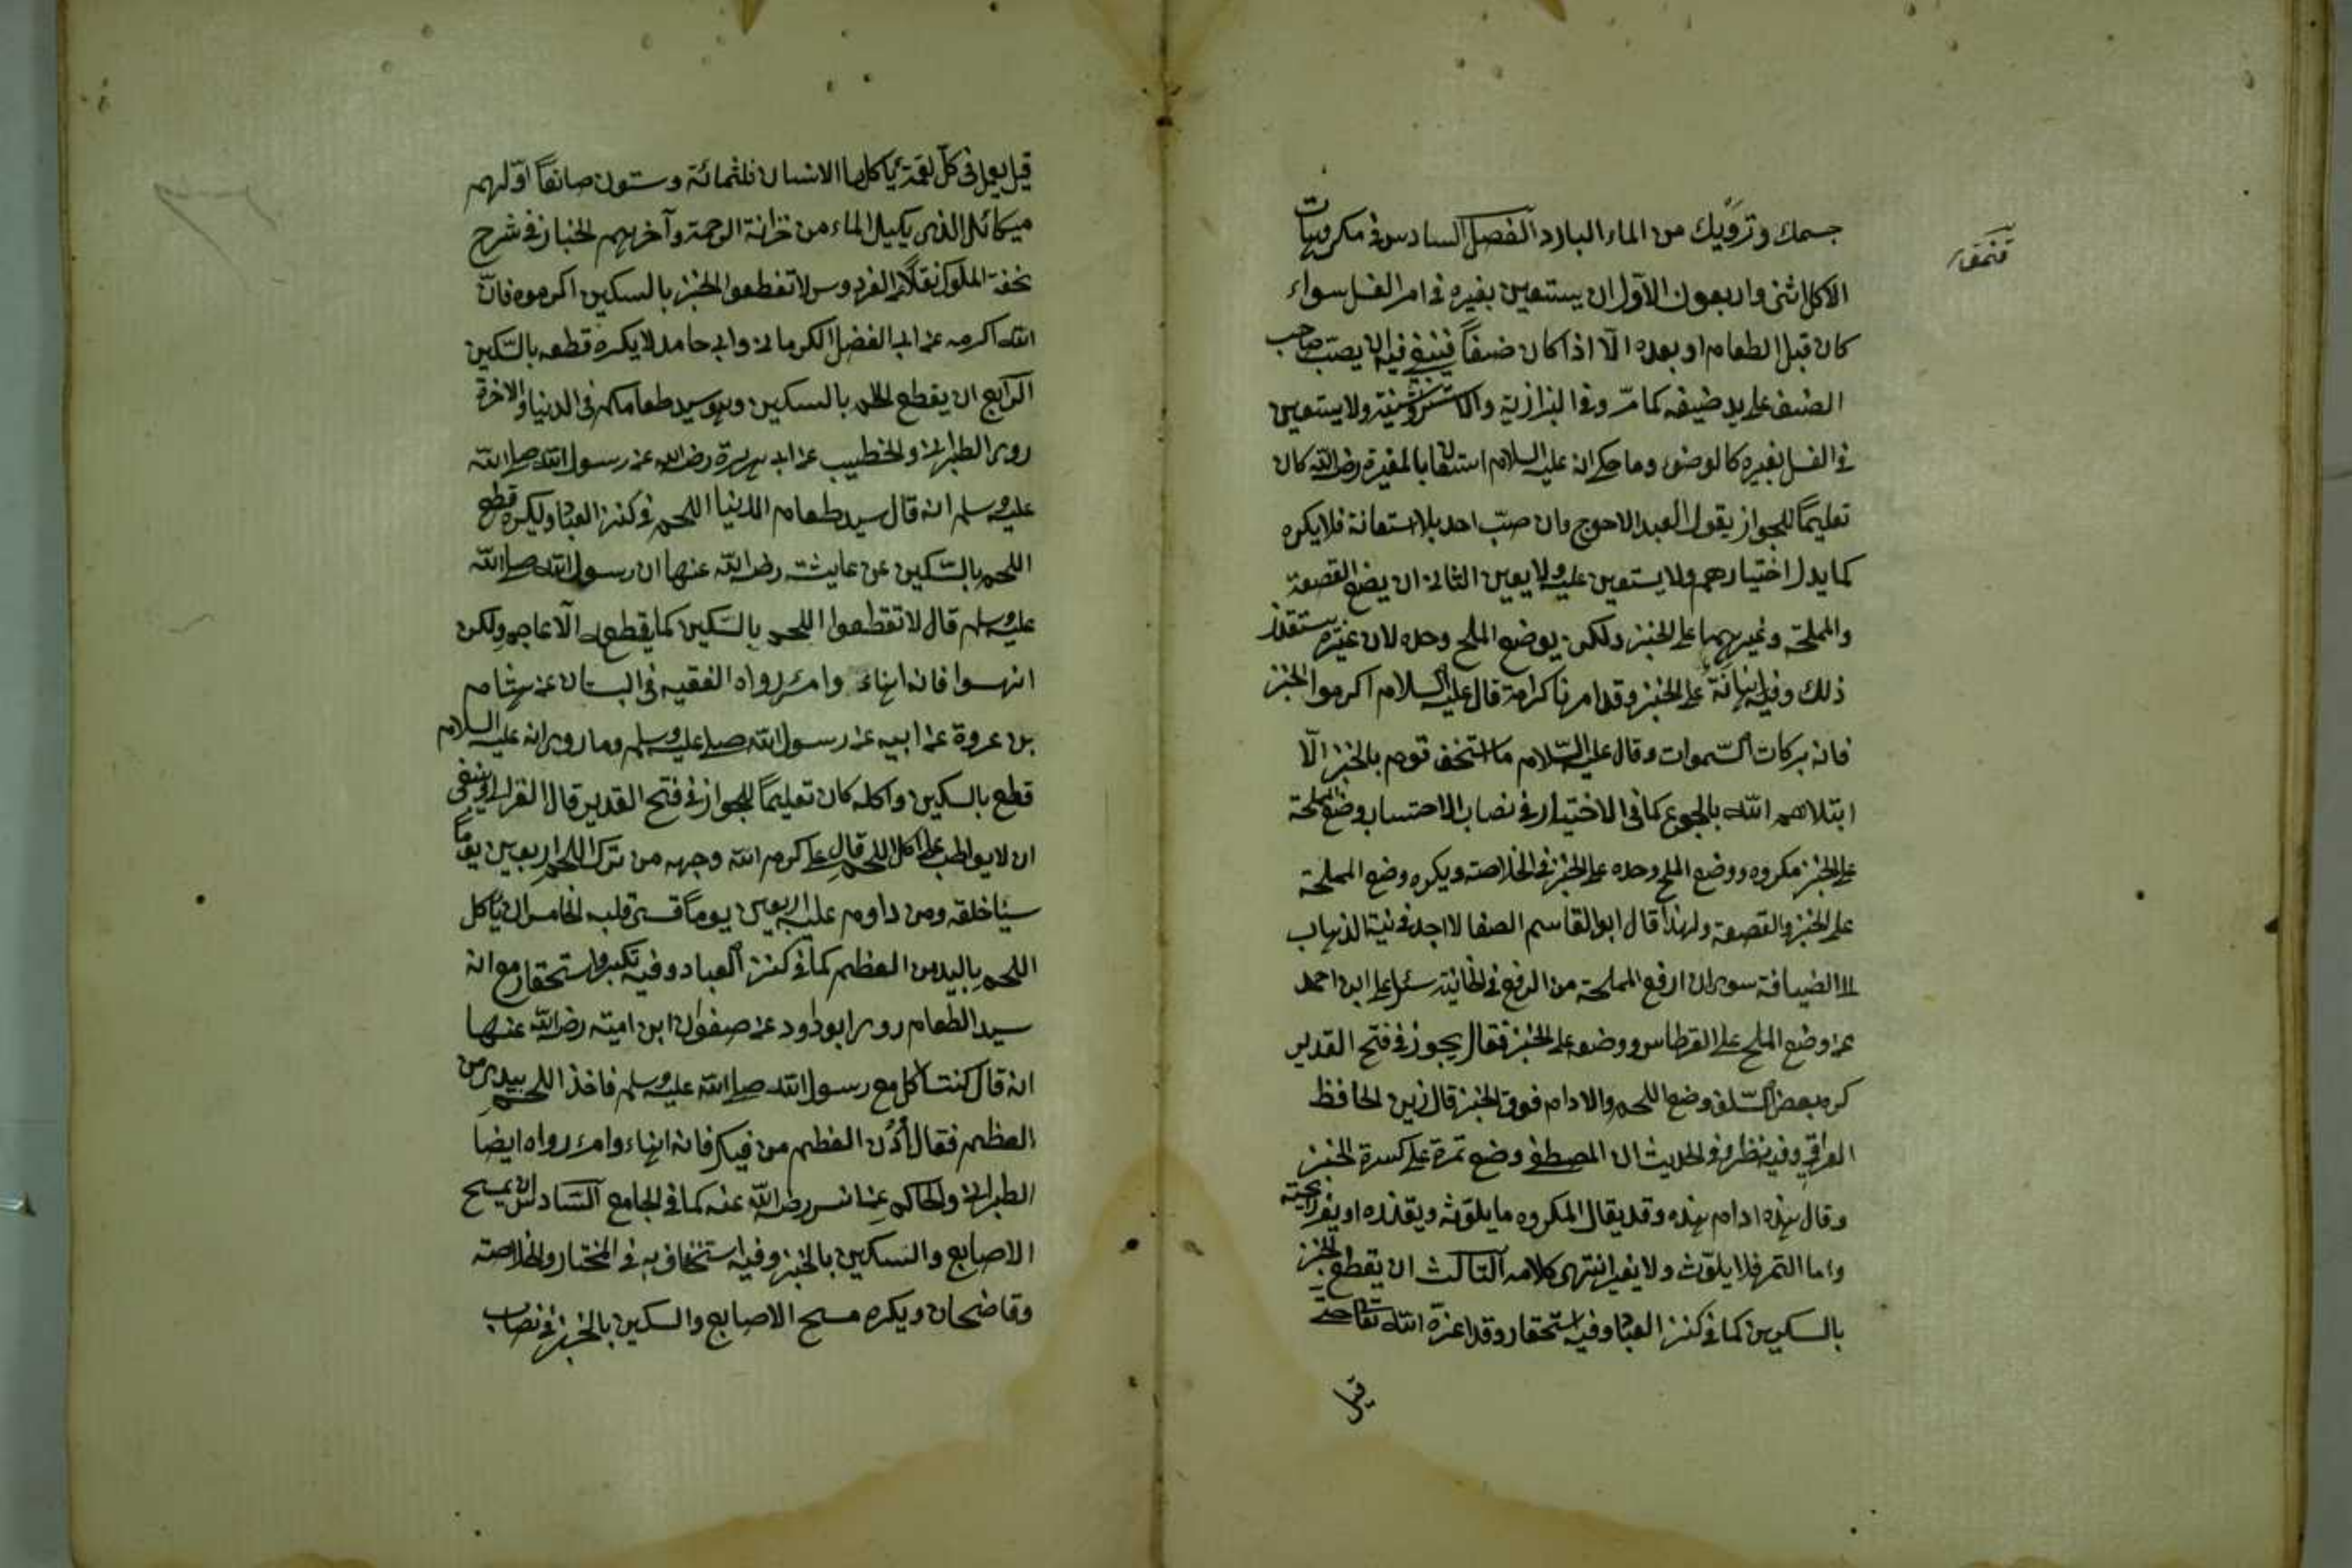 جسمك وترويك من الماء البارد الفصل السادس فى مكروهات
الاكل اثنى واربعون الاول ان يستعين بغيره فى امر الغسل سواء
كان قبل الطعام او بعده الّا اذا كان ضيفاً فينبغى فيه ان يصبّ صاحب
الضيف على يد ضيفه كما مرّ وفى البزازية ولا يستعين
فى الغسل بغيره كالوضوء وما حكى انه عليه السلام استعان بالمغيرة رضى الله كان
تعليماً للجواز يقول العبد الاحوج وان صبّ احد بلا استعانة فلا يكره
كما يدل اختيارهم ولا يستعين عليه ولا يعين الثانى ان يضع القصعة
والمملحة وغيرهما على الخبز ولكن يوضع الملح وحده لان غيره يستقذر
ذلك وفيه اهانة على الخبز وقد امرنا كرامة قال عليه السلام اكرموا الخبز
فانه بركات السّموات وقال عليه السّلام ما استخف قوم بالخبز الّا
ابتلاهم الله بالجوع كما فى الاختيار فى نصاب الاحتساب وضع المملحة
على الخبز مكروه ووضع الملح وحده على الخبز فى الخلاصة ويكره وضع المملحة
على الخبز والقصعة ولهذا قال ابو القاسم الصفا لا اجد فى نية الذهاب
الى الضيافة سوى ان ارفع المملحة من الرفع فى الخانية سئل على ابن احمد
عن وضع الملح على القرطاس ووضعه على الخبز فقال يجوز فى فتح القدير
كره بعض السّلف وضع اللحم والادام فوق الخبز قال زين الحافظ
العراقى وفيه نظر وفى الحديث ان المصطفى وضع تمرة على كسرة الخبز
وقال هذه ادام هذه وقد يقال المكروه ما يلوّثه ويقذره او يغير رايحته
واما التمر فلا يلوّث ولا يغير انتهى كلامه الثالث ان يقطع الخبز
بالسكين كما فى كنز العباد وفيه استحقار وقد اعزه الله تعالى حتى
قيل
قيل يعمل فى كلّ لقمة يأكلها الانسان ثلثمائة وستون صانعاً اوّلهم
ميكائل الذى يكيل الماء من خزانة الرحمة وآخرهم الخباز فى شرح
تحفة الملوك نقلاً عن الفردوس لا تقطعوا الخبز بالسكين اكرموه فانّ
الله اكرمه عن ابى الفضل الكرمانى وابى حامد لا يكره قطعه بالسّكين
الرّابع ان يقطع اللحم بالسكين وهو سيد طعامكم فى الدنيا والاخرة
روى الطبرانى والخطيب عن ابى هريرة رضى الله عن رسول الله صلى الله
عليه وسلم انه قال سيد طعام الدنيا اللحم فى كنز العباد ويكره قطع
اللحم بالسّكين عن عايشة رضى الله عنها ان رسول الله صلى الله
عليه وسلم قال لا تقطعوا اللحم بالسّكين كما يقطع الاعاجم ولكن
انهسوا فانه اهناء وامرء رواه الفقيه فى البستان عن هشام
بن عروة عن ابيه عن رسول الله صلى عليه وسلم وما روى انه عليه السلام
قطع بالسكين واكله كان تعليماً للجواز فى فتح القدير قال الغزالى وينبغى
ان لا يواظب على اكل اللحم قال على كرم الله وجهه من ترك اللحم اربعين يوماً
سئا خلقه ومن داوم عليه اربعين يوماً قسى قلبه الخامس ان يأكل
اللحم باليد من العظم كما فى كنز العباد وفيه تكبر واستحقار مع انه
سيد الطعام روى ابو داود عن صفوان ابن امية رضى الله عنهما
انه قال كنت اكل مع رسول الله صلى الله عليه وسلم فاخذ اللحم بيدى من
العظم فقال أدْن العظم من فيك فانه اهناء وامرء رواه ايضا
الطبرانى والحاكم عن انس رضى الله عنه كما فى الجامع السّادس ان يمسح
الاصابع والسكين بالخبز وفيه استخفاف به فى المختار والخلاصة
وقاضيخان ويكره مسح الاصابع والسكين بالخبز فى نصاب